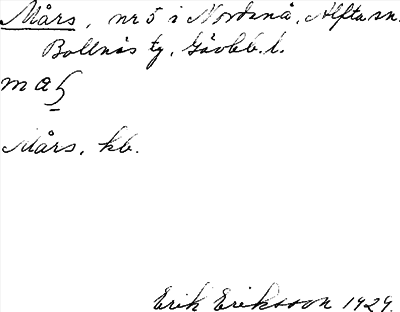 Mårs, nr 5 i Nordsnå, Alfta sn.
Bollnäs tg, Gävleb. l.
Mårs, kb.
Erik Eriksson 1929.